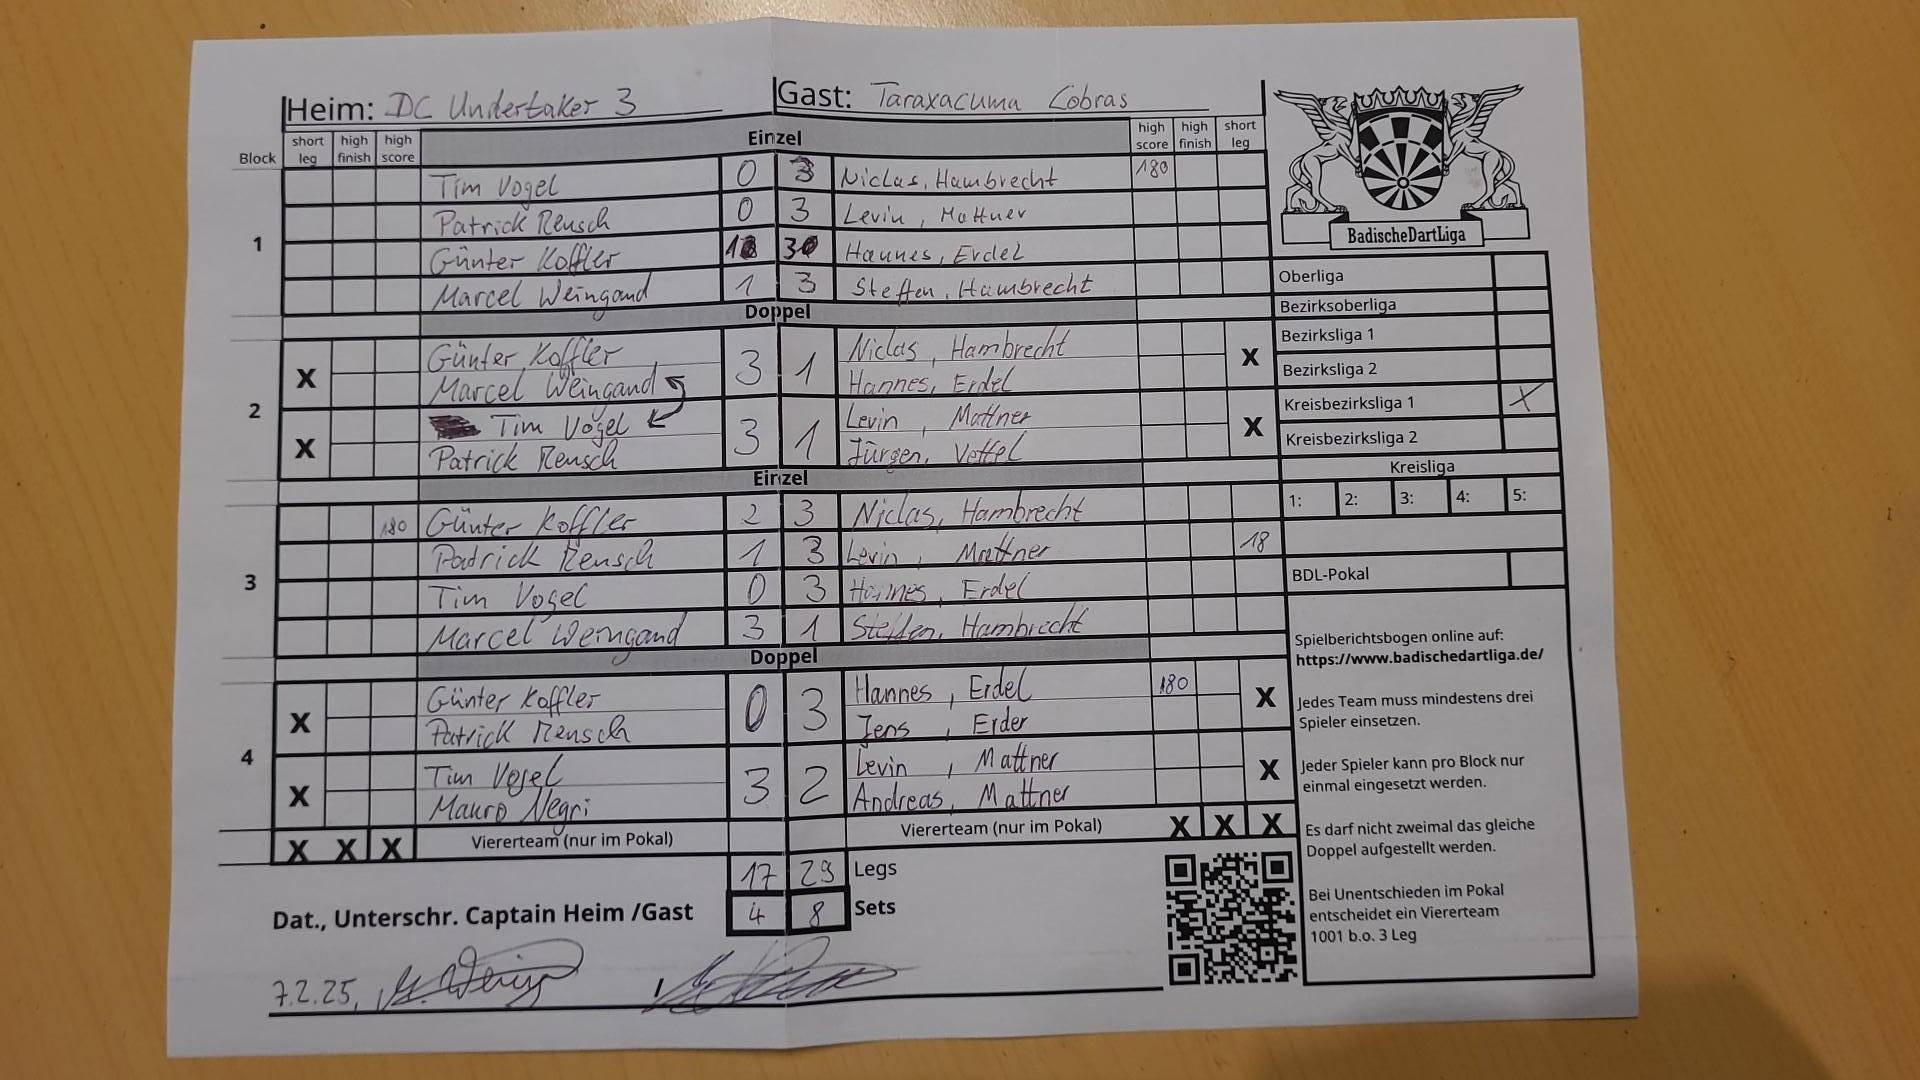 Heim: DC Undertaker 3 Gast: Taraxacuma Cobras
Block short leg high finish high score Einzel high score high finish short leg
1
Tim Vogel 0 3 Niclas, Hambrecht 180
Patrick Rensch 0 3 Levin, Mattner
Günter Koffler 1 3 Hannes, Erdel
Marcel Weingand 1 3 Steffen, Hambrecht
Doppel
2
X Günter Koffler 3 1 Niclas, Hambrecht X
Marcel Weingand Hannes, Erdel
X Tim Vogel 3 1 Levin Mattner X
Patrick Rensch Jürgen, Vettel
Einzel
3
180 Günter Koffler 2 3 Niclas, Hambrecht
Patrick Rensch 1 3 Levin, Mattner 18
Tim Vogel 0 3 Hannes, Erdel
Marcel Weingand 3 1 Steffen, Hambrecht
Doppel
4
X Günter Koffler 0 3 Hannes, Erdel 180 X
Patrick Rensch Jens, Erder
X Tim Vogel 3 2 Levin, Mattner X
Mauro Negri Andreas, Mattner
X X X Viererteam (nur im Pokal) Viererteam (nur im Pokal) X X X
17 29 Legs
Dat., Unterschr. Captain Heim /Gast 4 8 Sets
7.2.25,
BadischeDartLiga
Oberliga
Bezirksoberliga
Bezirksliga 1
Bezirksliga 2
Kreisbezirksliga 1 X
Kreisbezirksliga 2
Kreisliga
1: 2: 3: 4: 5:
BDL-Pokal
Spielberichtsbogen online auf:
https://www.badischedartliga.de/
Jedes Team muss mindestens drei
Spieler einsetzen.
Jeder Spieler kann pro Block nur
einmal eingesetzt werden.
Es darf nicht zweimal das gleiche
Doppel aufgestellt werden.
Bei Unentschieden im Pokal
entscheidet ein Viererteam
1001 b.o. 3 Leg